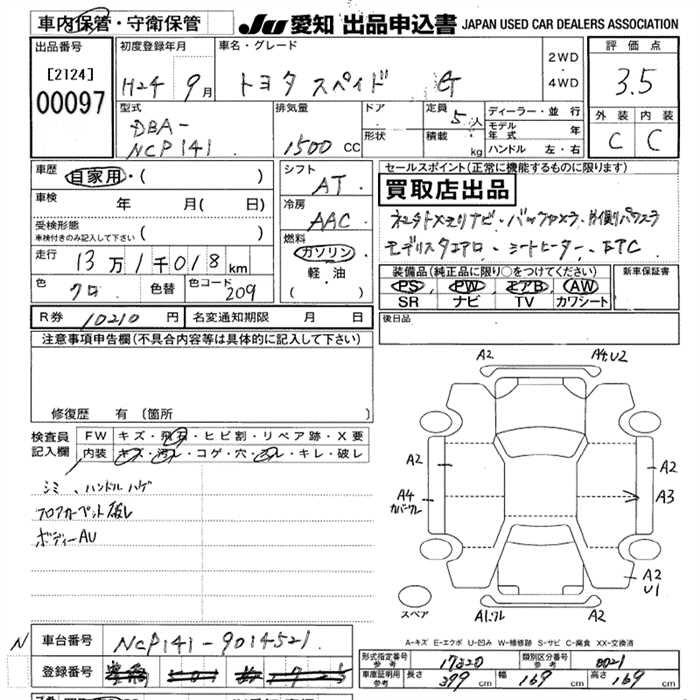 車内保管・守衛保管 JU 愛知 出品申込書 JAPAN USED CAR DEALERS ASSOCIATION
出品番号 初度登録年月 車名・グレード 2WD ・ 4WD 評価点
[2124]
00097
H24 9月 トヨタ スペイド G 3.5
型式 排気量 ドア 定員 5人 ディーラー・並行 外装 内装
DBA-
NCP141 1500 CC 形状 積載 kg モデル年式 年 C C
ハンドル 左・右
車歴 自家用・( ) シフト AT セールスポイント(正常に機能するものに限ります)
車検 年 月( 日) 冷房 AAC 買取店出品
受検形態 車検付きのみ記入して下さい ( )
燃料 ガソリン 軽・油 ( )
走行 13万1千018km
モデリスタエアロ・シートヒーター・ETC
色 クロ 色替 色コード 209
装備品(純正品に限り○をつけてください) 新車保証書
PS, PW, エアB, AW
SR ナビ TV カワシート
R券 10210円 名変通知期限 月 日 後日品
注意事項申告欄(不具合内容等は具体的に記入して下さい)
修復歴 有(箇所 )
検査員記入欄 FW キズ・飛石・ヒビ割・リペア跡・X要
内装 キズ・汚レ・コゲ・穴・スレ・キレ・破レ
シミ、ハンドルハゲ
フロアカーペット破レ
ボディーAU
A2 A4.U2
A2 A2
A4 カバーワレ A3
A2
U1
スペア A1.ワレ
A-キズ E-エクボ U-凹み W-補修跡 S-サビ C-腐食 XX-交換済
N 車台番号 NCP141-9014521
登録番号
形式指定番号 参考 17320 類別区分番号 参考 0021
車庫証明用 参考 長さ 399cm 幅 169cm 高さ 169cm